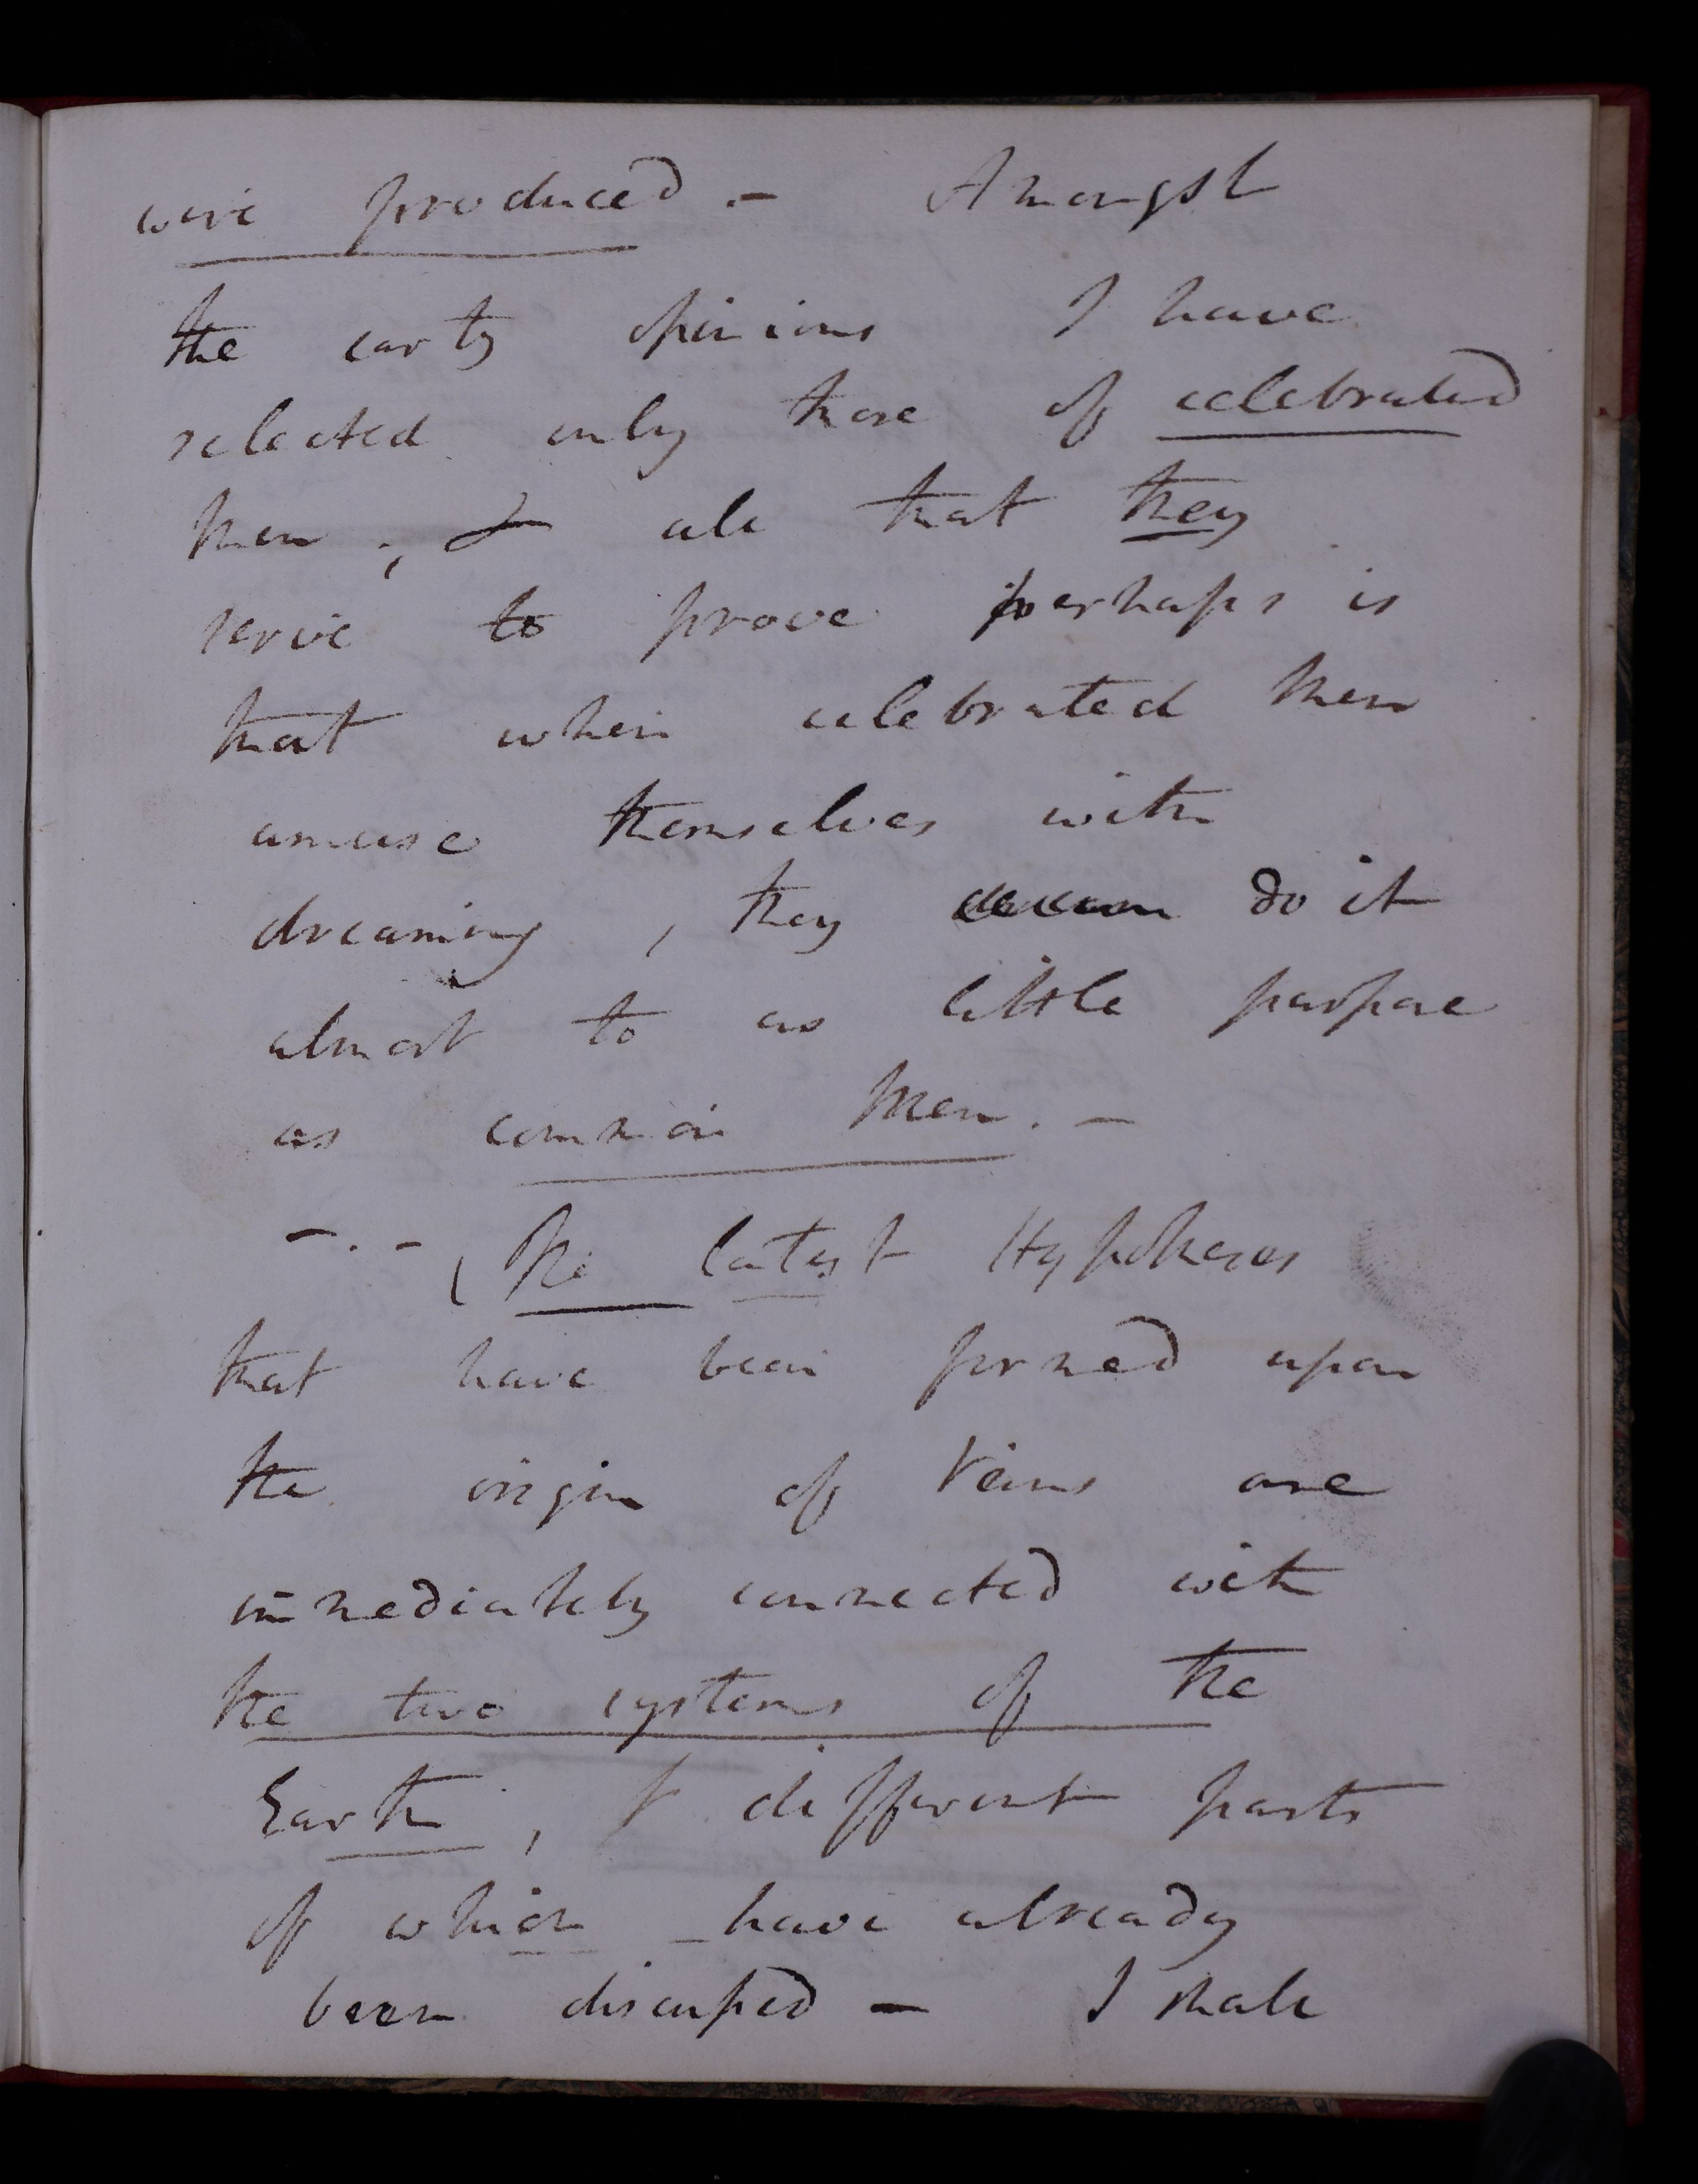 were produced .- Amongst
the early opinions I have
selected only those of celebrated
Men ; & all that they
serve to prove perhaps is
that when celebrated Men
amuse themselves with
dreaming , they do it
almost to as little purpose
as common Men . -
- . - ( The latest Hypotheses
that have been formed upon
the origin of Veins are
immediately connected with
the two systems of the
Earth , & different parts
of which have already
been discussed - I shall